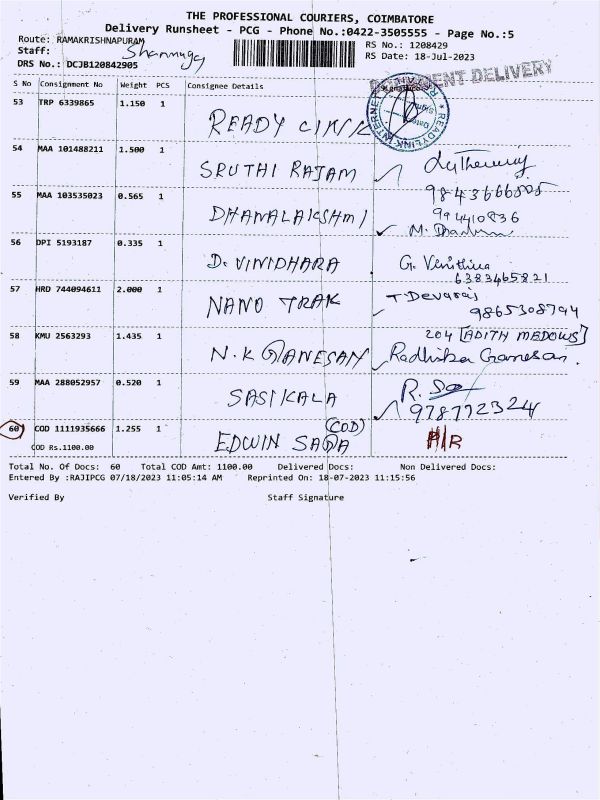 THE PROFESSIONAL COURIERS, COIMBATORE
Delivery Runsheet - PCG - Phone No.:0422-3505555 - Page No.:5
Route: RAMAKRISHNAPURAM
RS No.: 1208429
Staff: Shanmuga
RS Date: 18-Jul-2023
DRS No.: DCJB120842905
DELIVERY
S No Consignment No Weight PCS Consignee Details
53 TRP 6339865 1.150 1
READY LINK
54 MAA 101488211 1.500 1
SRUTHI RAJAM
9843666505
55 MAA 103535023 0.565 1
DHANALAKSHMI
994410836
56 DPI 5193187 0.335 1
D. VINIDHARA G.
6383465821
57 HRD 744094611 2.000 1
NANO TRAK T. Devaraj
9865308794
58 KMU 2563293 1.435 1
204 [ADITH MEDOWS]
N.K GANESAN Radhika Ganesan.
59 MAA 288052957 0.520 1
SASIKALA R.
978772324
60 COD 1111935666 1.255 1
(COD)
EDWIN
COD Rs.1100.00
Total No. Of Docs: 60 Total COD Amt: 1100.00 Delivered Docs: Non Delivered Docs:
Entered By :RAJIPCG 07/18/2023 11:05:14 AM Reprinted On: 18-07-2023 11:15:56
Verified By Staff Signature